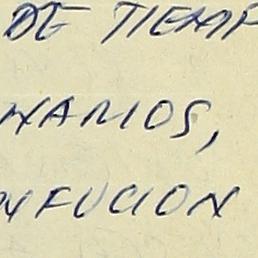 DE TIEMP
NARIOS,
NFUCION